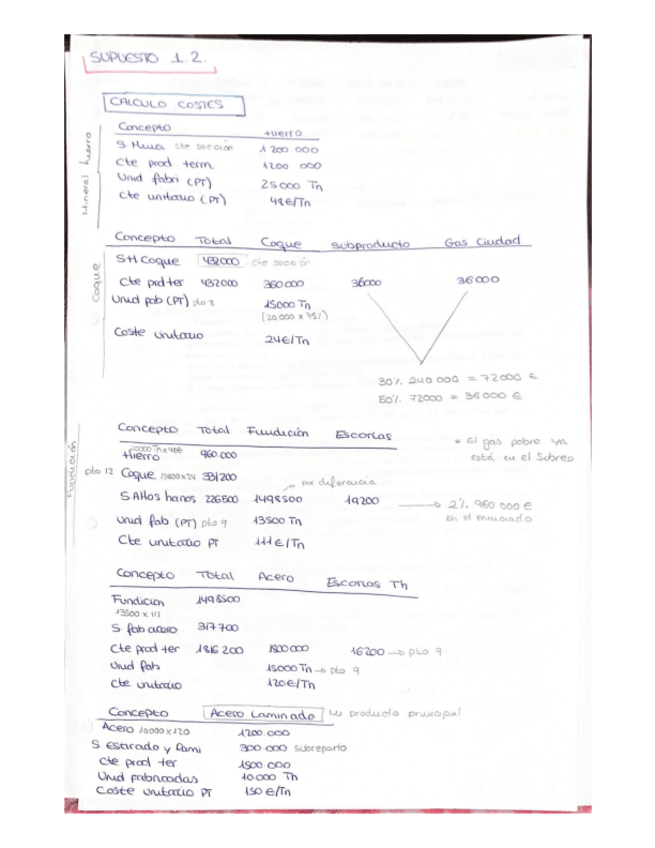 SUPUESTO 1.2.
CÁLCULO COSTES
Mineral hierro
Concepto Hierro
S Mina cte sección 1 200 000
Cte prod term. 1200 000
Unid fabri (PT) 25000 Tn
Cte unitario (PT) 48€/Tn
Coque
Concepto Total Coque Subproducto Gas Ciudad
S+H Coque 432000 cte sección
Cte prd ter 432000 360000 36000 36000
Unid fab (PT) pto 8 15000 Tn
(20000 x 75%)
Coste unitario 24€/Tn
30%. 240 000 = 72000 €
50%. 72000 = 36000 €
Fundición
Concepto Total Fundición Escorias
Hierro 960.000
* El gas pobre ya
está en el Subrep
pto 12 Coque 13800x24 331200
por diferencia
S Altos hornos 226500 1498500 19200 → 2%. 960 000 €
en el enunciado
Unid fab (PT) pto 9 13500 Tn
Cte unitario PT 111€/Tn
Concepto Total Acero Escorias Th
Fundición 1498500
13500 x 111
S. fab acero 317700
Cte prod ter 1816200 1800000 16200 → pto 9
Unid fab 15000 Tn → pto 9
Cte unitario 120€/Tn
Concepto Acero Laminado Mi producto principal
Acero 10000x120 1200.000
S estirado y lami 300.000 subreparto
Cte prod ter 1500 000
Unid fabricadas 10000 Tn
Coste unitario PT 150 €/Tn